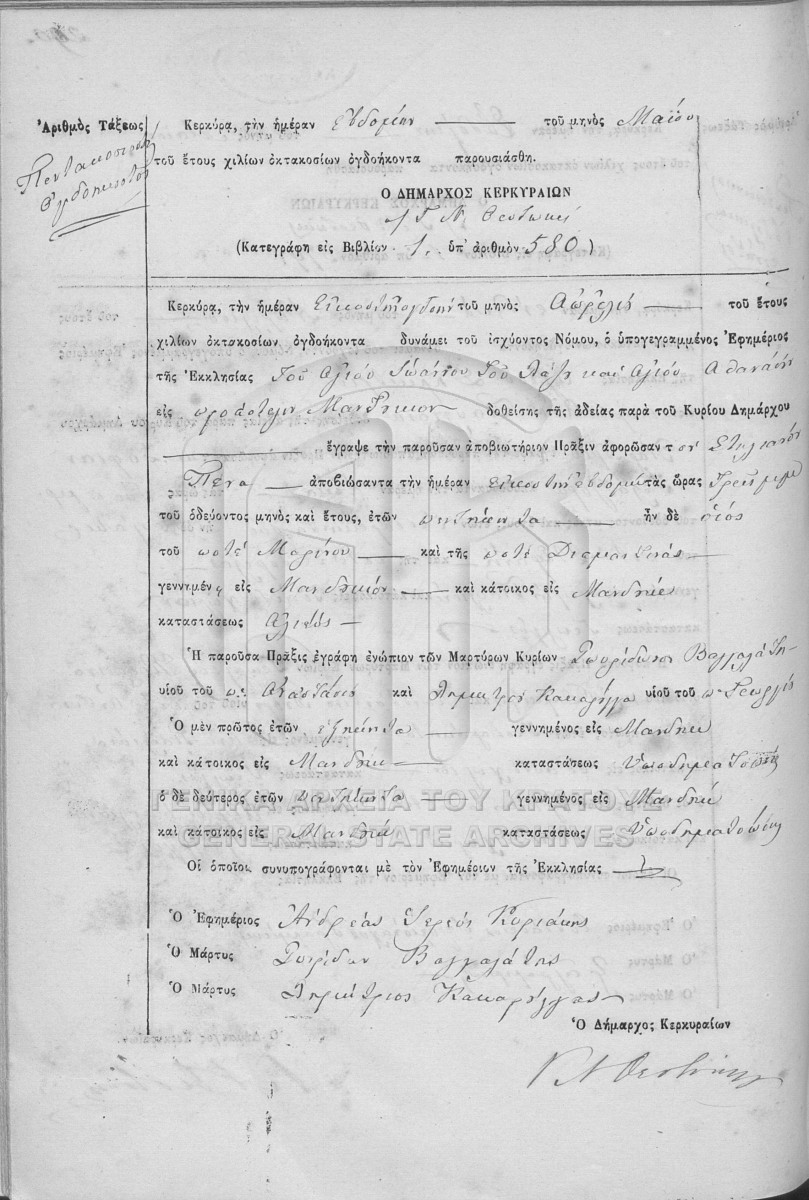 Ἀριθμὸς Τάξεως
Πεντακοσιοστὸς
Ὀγδοηκοστὸς
Κερκύρα, τὴν ἡμέραν Ἑβδόμην τοῦ μηνὸς Μαΐου
τοῦ ἔτους χιλίων ὀκτακοσίων ὀγδοήκοντα παρουσιάσθη.
Ὁ ΔΗΜΑΡΧΟΣ ΚΕΡΚΥΡΑΙΩΝ
Γ Ν Θεοτόκης
(Κατεγράφη εἰς Βιβλίον 1. ὑπ' ἀριθμὸν 580)
Κερκύρα, τὴν ἡμέραν Εἰκοστὴν ὀγδόην τοῦ μηνὸς Ἀπριλίου τοῦ ἔτους
χιλίων ὀκτακοσίων ὀγδοήκοντα δυνάμει τοῦ ἰσχύοντος Νόμου, ὁ ὑπογεγραμμένος Ἐφημέριος
τῆς Ἐκκλησίας τοῦ Ἁγίου Ἰωάννου τοῦ Λάζη καὶ Ἁγίου Ἀθανασίου
εἰς προάστειον Μανδουκίον δοθείσης τῆς ἀδείας παρὰ τοῦ Κυρίου Δημάρχου
ἔγραψε τὴν παροῦσαν ἀποβιωτήριον Πρᾶξιν ἀφορῶσαν τὸν Στυλιανόν
Πένα ἀποβιώσαντα τὴν ἡμέραν εἰκοστὴν ἑβδόμην τὰς ὥρας τρεῖς μ μ
τοῦ ὁδεύοντος μηνὸς καὶ ἔτους, ἐτῶν πεντήκοντα ἦν δὲ υἱὸς
τοῦ ποτὲ Μαρίνου καὶ τῆς ποτὲ Διαμαντίνας
γεννημένος εἰς Μανδουκίον καὶ κάτοικος εἰς Μανδούκι
καταστάσεως Ἁλιεύς
Ἡ παροῦσα Πρᾶξις ἐγράφη ἐνώπιον τῶν Μαρτύρων Κυρίων Σπυρίδωνος Βαγγαλάτη
υἱοῦ τοῦ π. Ἀναστάση καὶ Δημητρίου Κακαρούγγα υἱοῦ τοῦ π. Γεωργίου
Ὁ μὲν πρῶτος ἐτῶν ἑξήκοντα γεννημένος εἰς Μανδούκι
καὶ κάτοικος εἰς Μανδούκι καταστάσεως Ὑποδηματοποιὸς
ὁ δὲ δεύτερος ἐτῶν πεντήκοντα γεννημένος εἰς Μανδούκι
καὶ κάτοικος εἰς Μανδούκι καταστάσεως Ὑποδηματοποιὸς
Οἱ ὁποῖοι συνυπογράφονται μὲ τὸν Ἐφημέριον τῆς Ἐκκλησίας
Ὁ Ἐφημέριος Ἀνδρέας Ἱερεὺς Κυριάκης
Ὁ Μάρτυς Σπυρίδων Βαγγαλάτης
Ὁ Μάρτυς Δημήτριος Κακαρούγγας
Ὁ Δήμαρχος Κερκυραίων
Γ Ν Θεοτόκης
ΓΕΝΙΚΑ ΑΡΧΕΙΑ ΤΟΥ ΚΡΑΤΟΥΣ
GENERAL STATE ARCHIVES